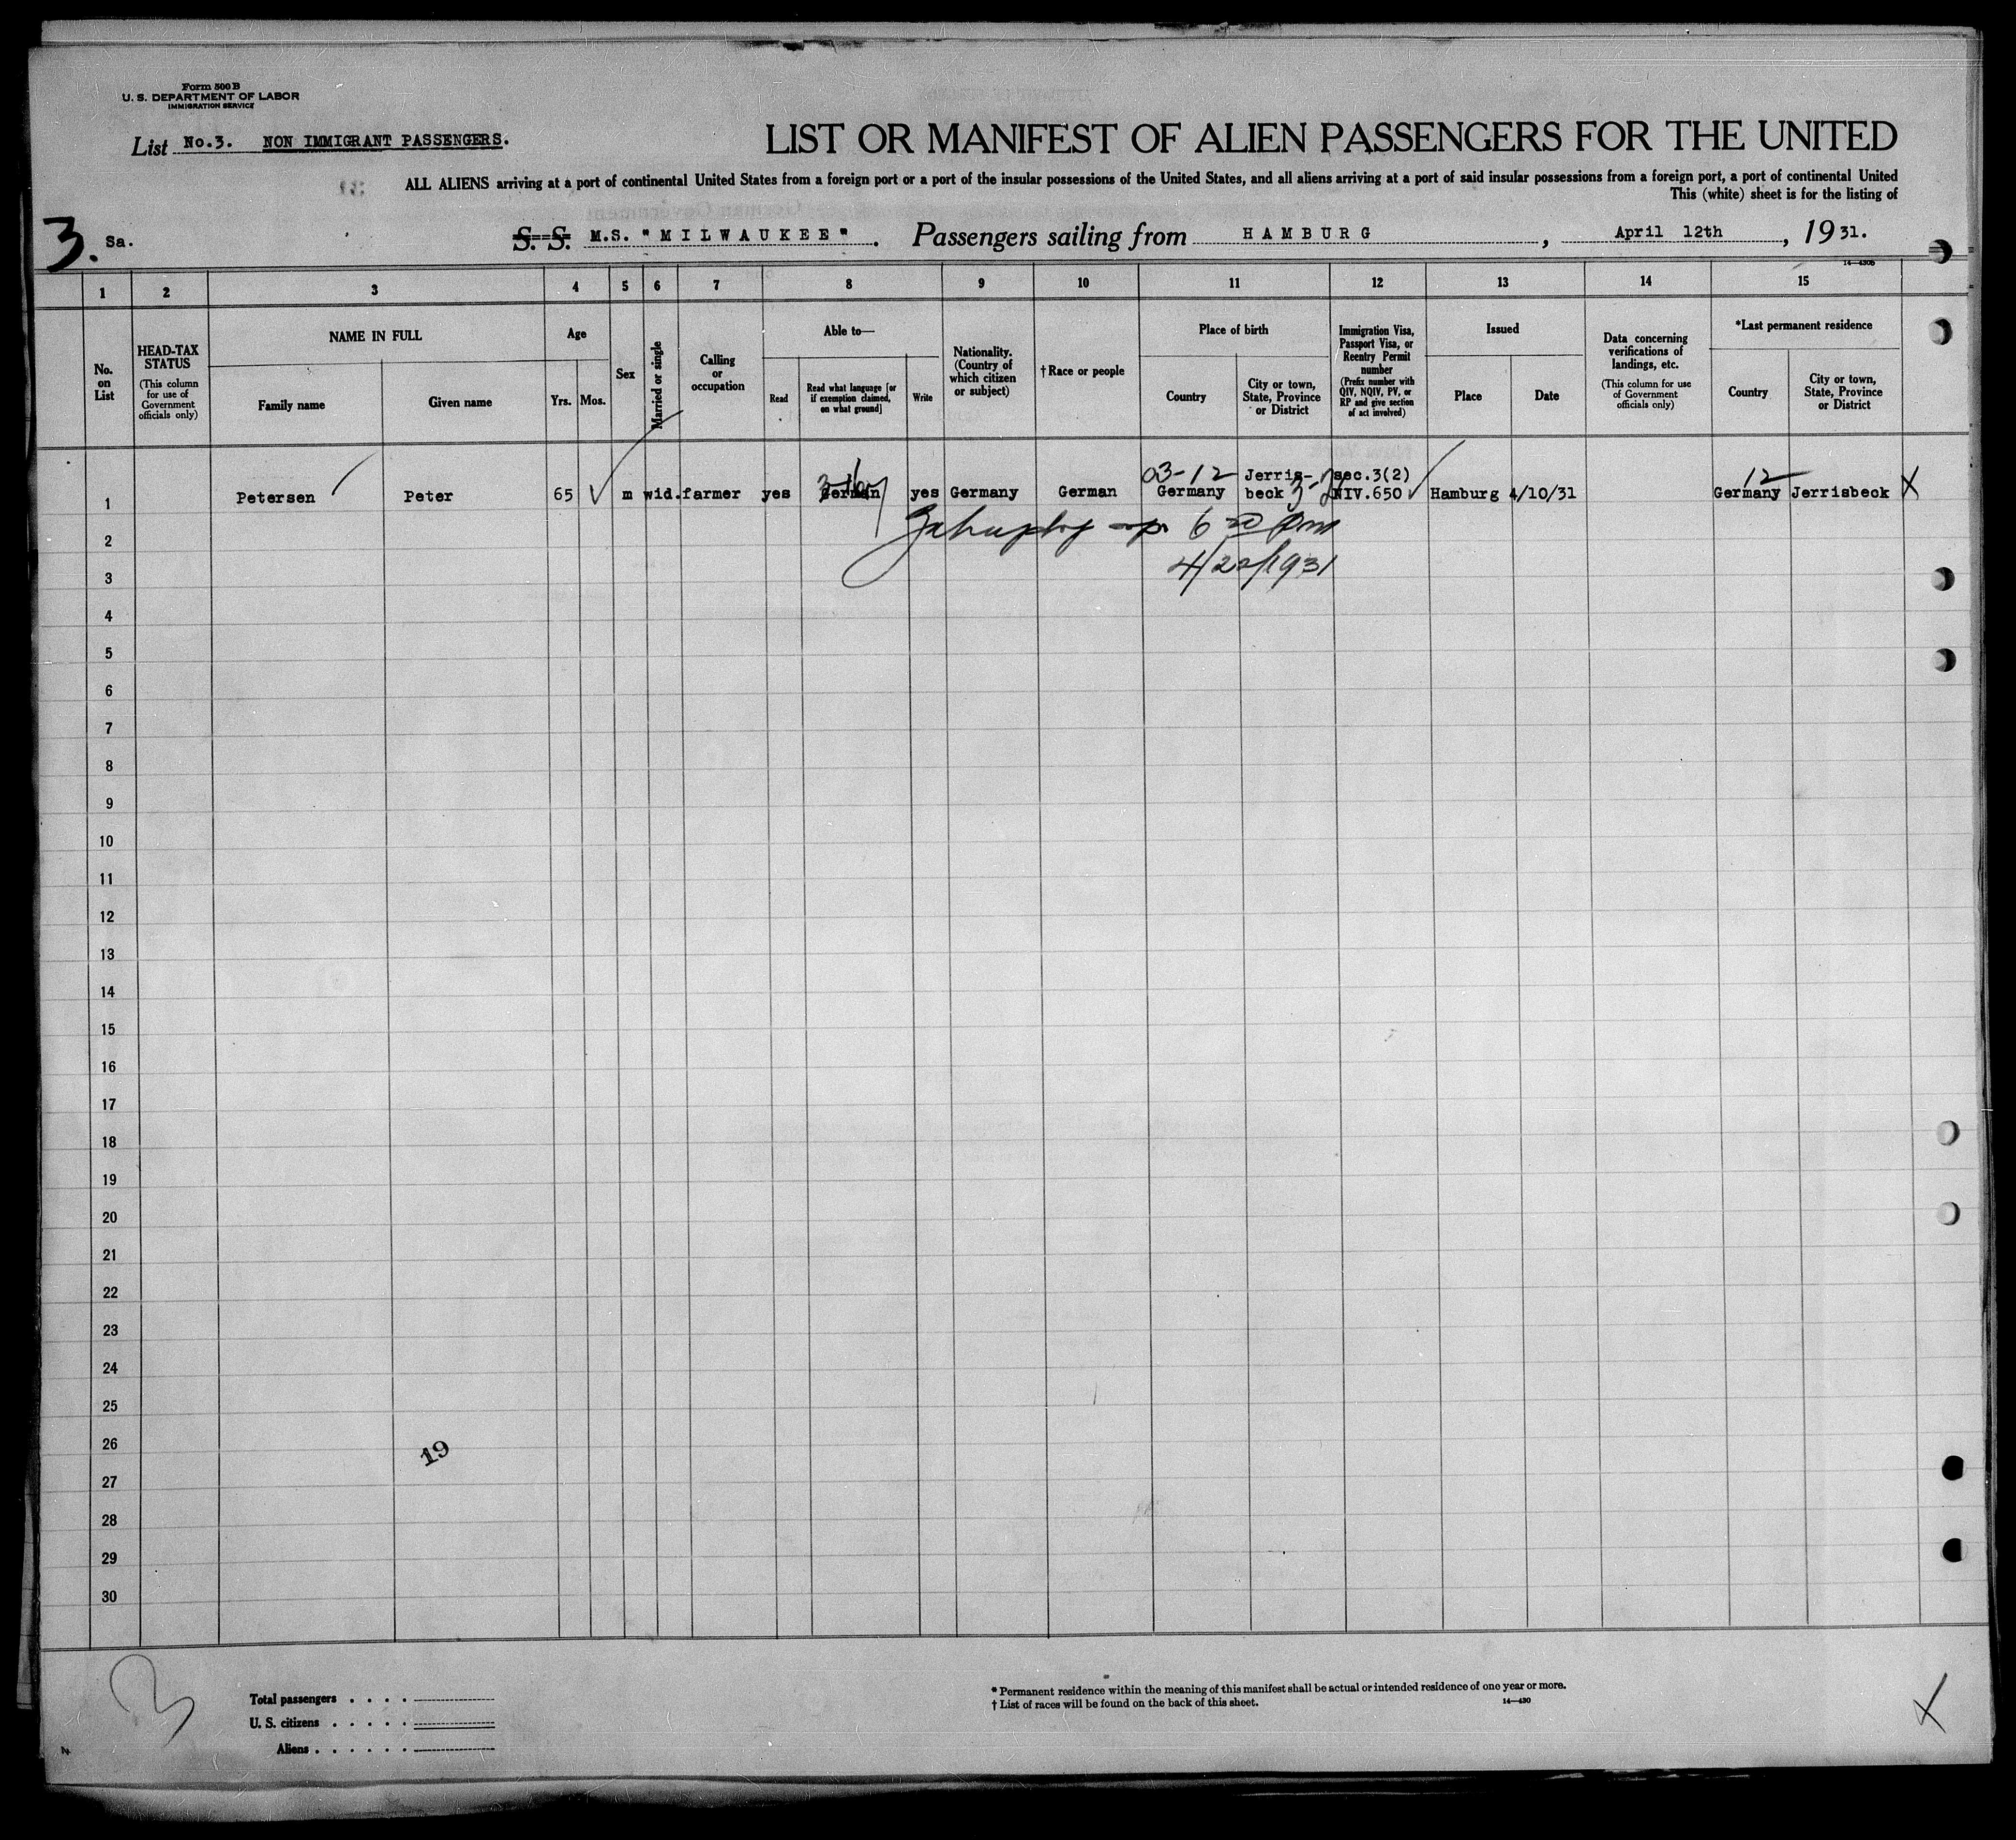 Form 500 B
U. S. DEPARTMENT OF LABOR
IMMIGRATION SERVICE
List No.3. NON IMMIGRANT PASSENGERS.
LIST OR MANIFEST OF ALIEN PASSENGERS FOR THE UNITED
ALL ALIENS arriving at a port of continental United States from a foreign port or a port of the insular possessions of the United States, and all aliens arriving at a port of said insular possessions from a foreign port, a port of continental United
This (white) sheet is for the listing of
3. Sa.
S. S. M.S. "MILWAUKEE". Passengers sailing from HAMBURG, April 12th, 1931.
14—430b
1 2 3 4 5 6 7 8 9 10 11 12 13 14 15
No. on List
HEAD-TAX STATUS (This column for use of Government officials only)
NAME IN FULL
Family name
Given name
Age
Yrs. Mos.
Sex
Married or single
Calling or occupation
Able to—
Read
Read what language [or if exemption claimed, on what ground]
Write
Nationality. (Country of which citizen or subject)
† Race or people
Place of birth
Country
City or town, State, Province or District
Immigration Visa, Passport Visa, or Reentry Permit number (Prefix number with QIV, NQIV, PV, or RP and give section of act involved)
Issued
Place
Date
Data concerning verifications of landings, etc. (This column for use of Government officials only)
*Last permanent residence
Country
City or town, State, Province or District
03-12 Jerris- sec.3(2) 12
1 Petersen Peter 65 m wid. farmer yes German yes Germany German Germany beck NIV.650 Hamburg 4/10/31 Germany Jerrisbeck X
2 6 pm
3 4/22/1931
4
5
6
7
8
9
10
11
12
13
14
15
16
17
18
19
20
21
22
23
24
25
26
19
27
28
29
30
3
Total passengers . . . .
U. S. citizens . . . . .
Aliens . . . . . .
* Permanent residence within the meaning of this manifest shall be actual or intended residence of one year or more.
† List of races will be found on the back of this sheet.
14—430
X